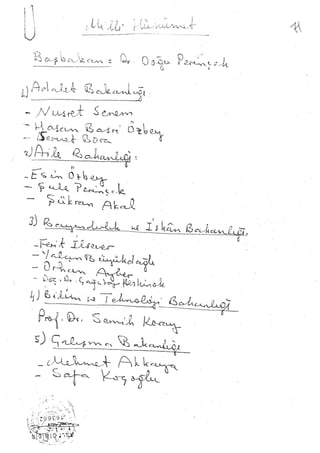 Milli Hükümet
Başbakan: Dr. Doğu Perinçek
1) Adalet Bakanlığı:
- Nusret Senem
- Hasan Basri Özbey
- Servet Bora
2) Aile Bakanlığı:
- Esin Özbey
- Şule Perinçek
- Şükran Akal
3) Bayındırlık ve İskân Bakanlığı
- Ferit İlsever
- Yalçın Büyükdağlı
- Orhan
- Doç. Dr.
4) Bilim ve Teknoloji Bakanlığı
Prof. Dr. Semih Koray
5) Çalışma Bakanlığı
- Mehmet Akkaya
- Safa Koçoğlu